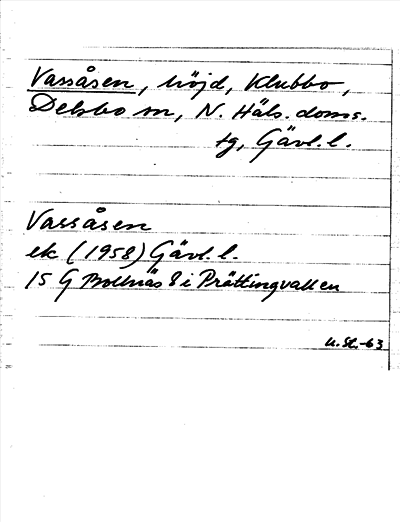 Vassåsen, höjd, Klubbo,
Delsbo sn, N. Häls. doms.
tg, Gävl. l.
Vassåsen
ek (1958) Gävl. l.
15 G Bollnäs 8 i Prättingvallen
U.St.-63